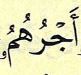 أَجْرُهُمُۥ